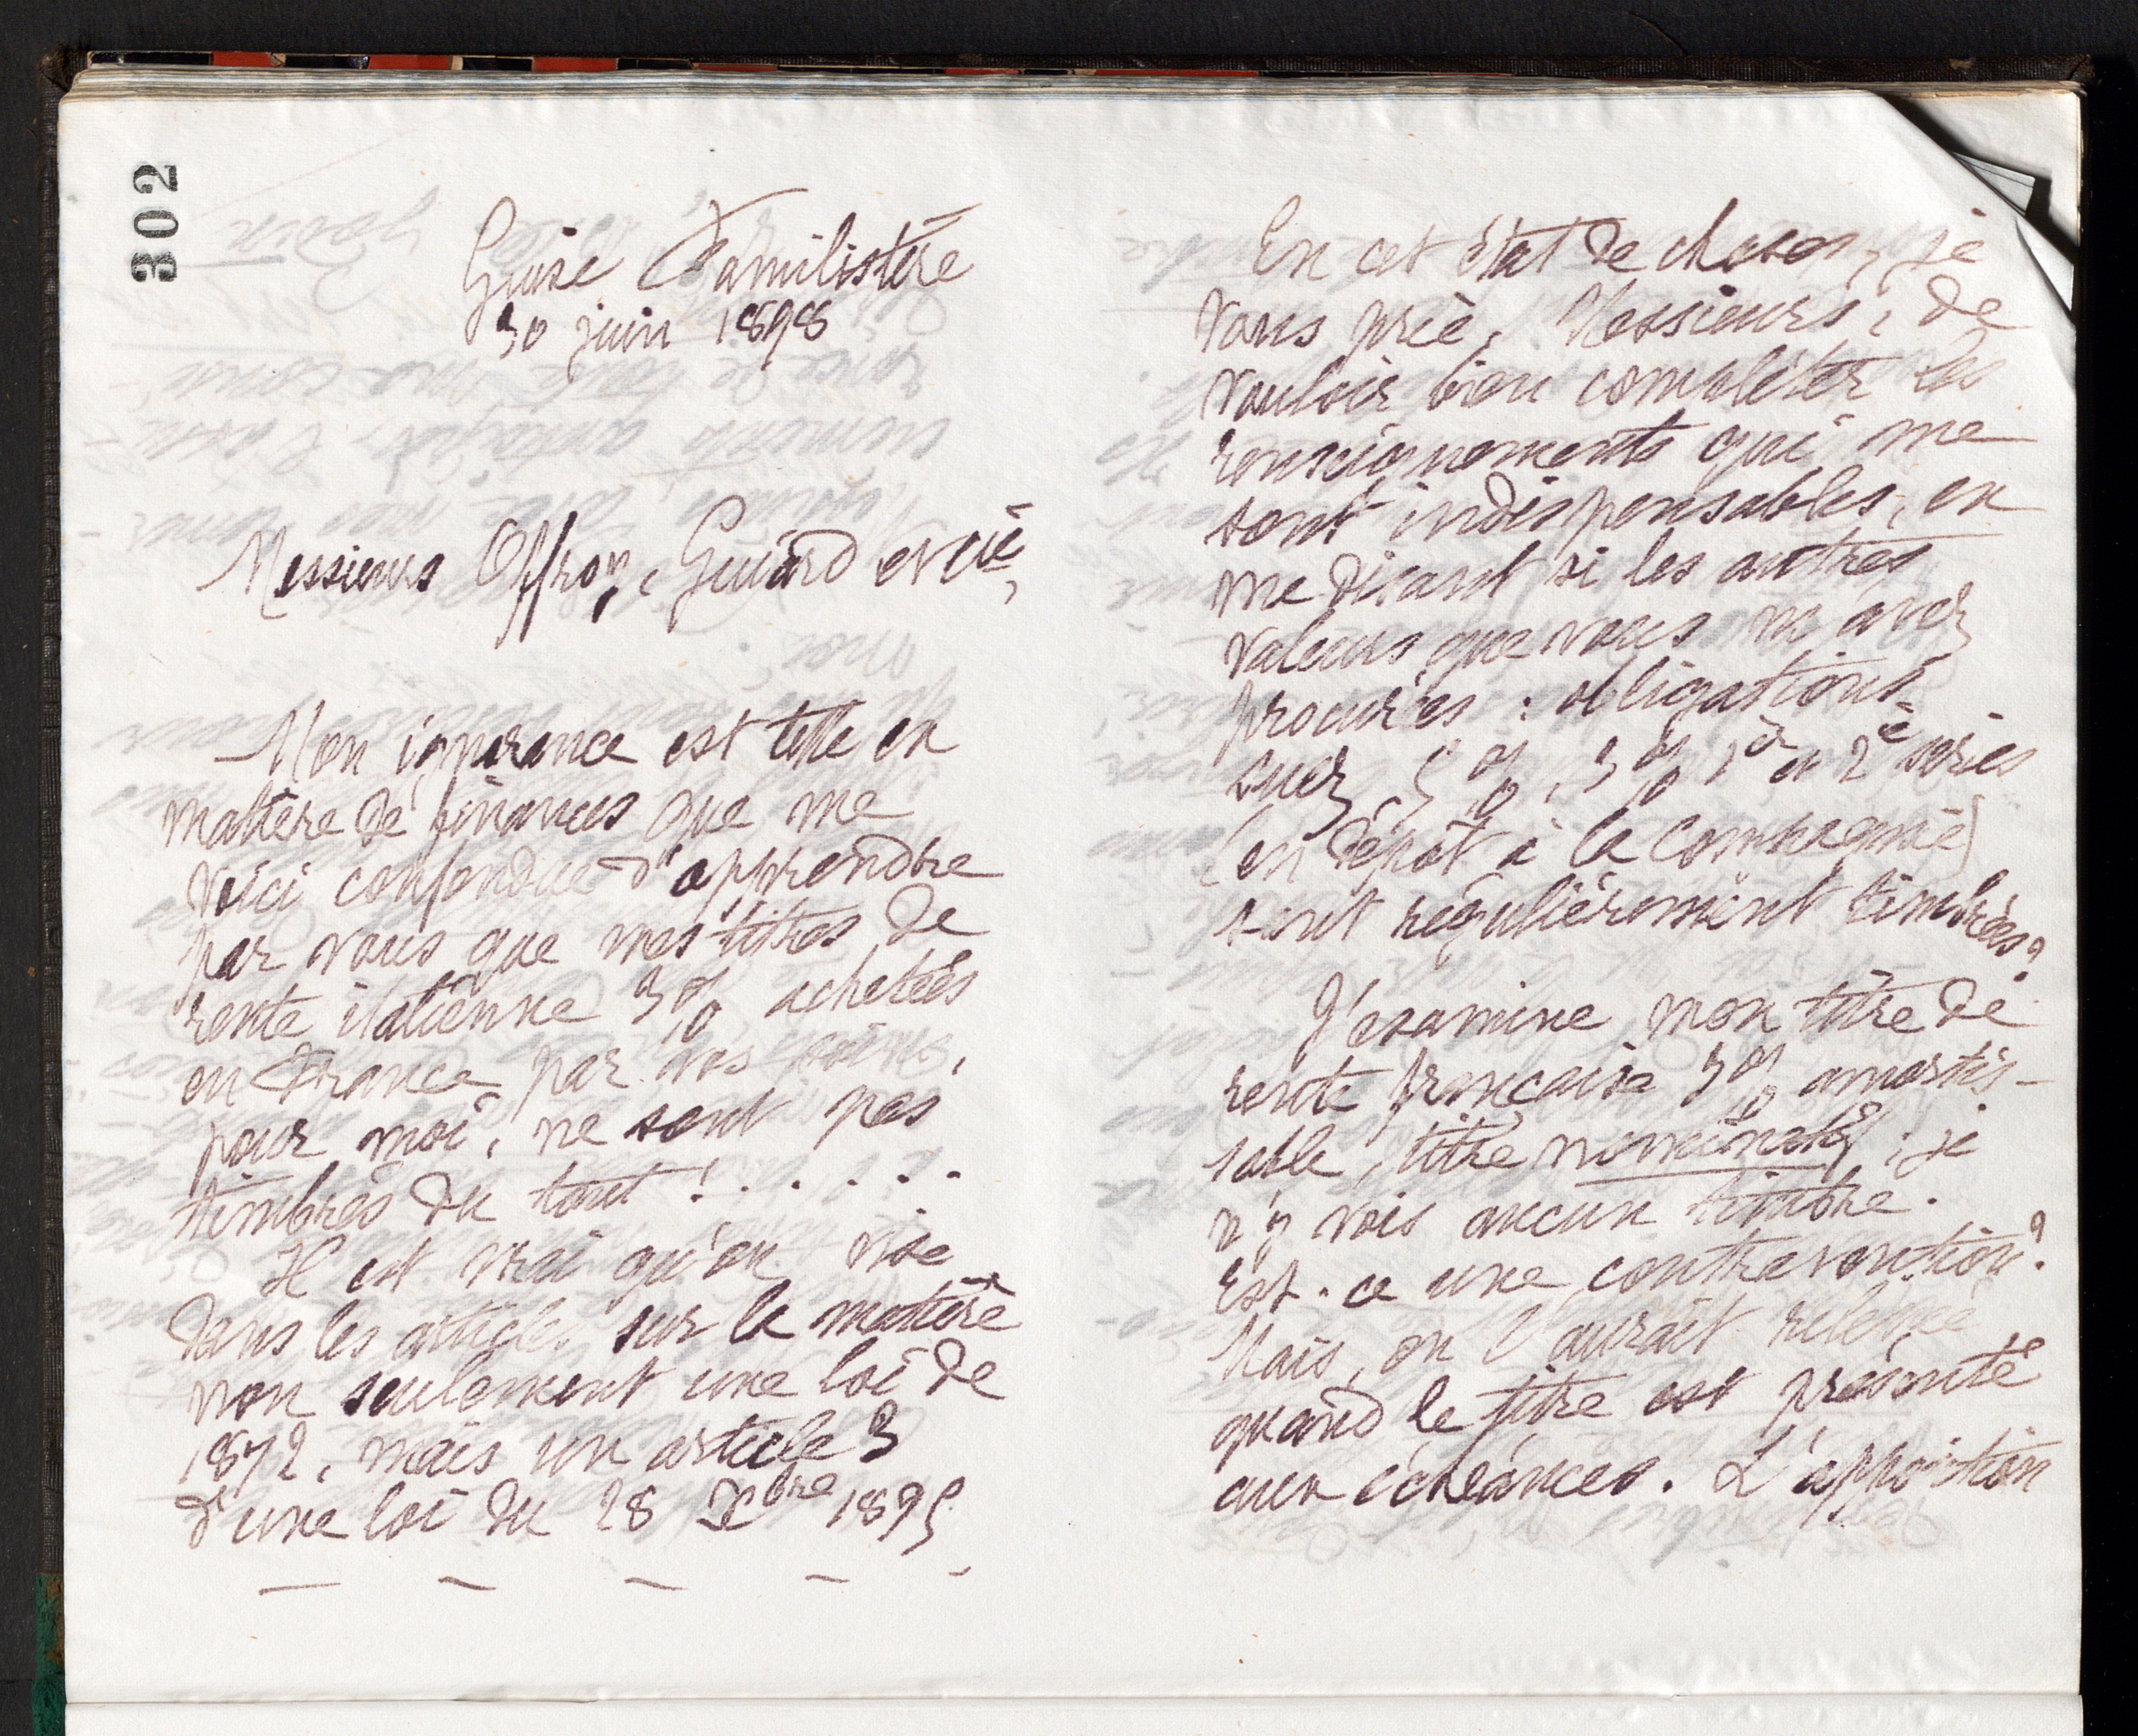 302
Guise Familistère
30 juin 1898
Messieurs Offroy, Guiard et Cie,
Mon ignorance est telle en
matière de finances que me
voici confondue d'apprendre
par vous que mes titres de
rente italienne 3% achetés
en France par vos soins,
pour moi, ne sont pas
timbrés du tout ! . . . . .
Il est vrai qu'on vise
dans les articles sur la matière
non seulement une loi de
1872, mais un article 3
d'une loi du 28 Xbre 1895
— — — — -
En cet état de choses, je
vous prie, Messieurs, de
vouloir bien compléter les
renseignements qui me
sont indispensables, en
me disant si les autres
valeurs que vous m'avez
procurées : obligations
Suez 5%, 3% 1e et 2e séries
(en dépôt à la Compagnie)
sont régulièrement timbrées?
J'examine mon titre de
rente française 3% amortis-
sable, titre nominatif ; je
n'y vois aucun timbre.
Est-ce une contravention?
Mais, on l'aurait relevée
quand le titre est présenté
aux échéances. L'apposition